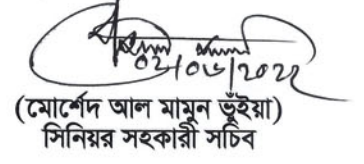 ০২/০৬/২০২২
(মোর্শেদ আল মামুন ভূঁইয়া)
সিনিয়র সহকারী সচিব